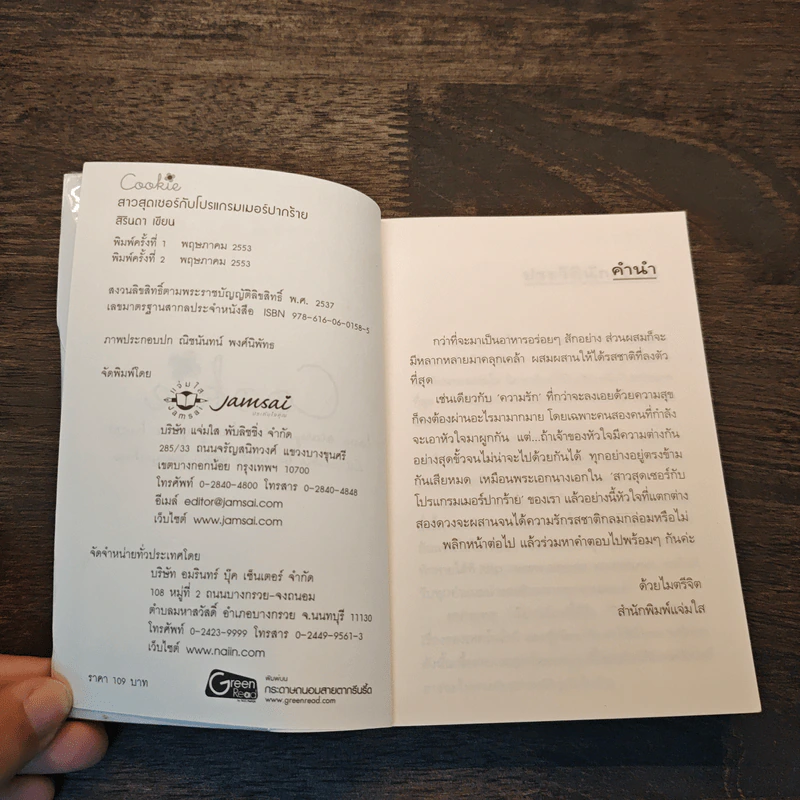 Cookie
สาวสุดเซอร์กับโปรแกรมเมอร์ปากร้าย
สิรินดา เขียน
พิมพ์ครั้งที่ 1 พฤษภาคม 2553
พิมพ์ครั้งที่ 2 พฤษภาคม 2553
สงวนลิขสิทธิ์ตามพระราชบัญญัติลิขสิทธิ์ พ.ศ. 2537
เลขมาตรฐานสากลประจำหนังสือ ISBN 978-616-06-0158-5
ภาพประกอบปก ณิชนันทน์ พงศ์นิพัทธ
จัดพิมพ์โดย
แจ่มใส
Jamsai
Jamsai
บริษัท แจ่มใส พับลิชชิ่ง จำกัด
285/33 ถนนจรัญสนิทวงศ์ แขวงบางขุนศรี
เขตบางกอกน้อย กรุงเทพฯ 10700
โทรศัพท์ 0-2840-4800 โทรสาร 0-2840-4848
อีเมล์ editor@jamsai.com
เว็บไซต์ www.jamsai.com
จัดจำหน่ายทั่วประเทศโดย
บริษัท อมรินทร์ บุ๊ค เซ็นเตอร์ จำกัด
108 หมู่ที่ 2 ถนนบางกรวย-จงถนอม
ตำบลมหาสวัสดิ์ อำเภอบางกรวย จ.นนทบุรี 11130
โทรศัพท์ 0-2423-9999 โทรสาร 0-2449-9561-3
เว็บไซต์ www.naiin.com
ราคา 109 บาท
Green Read
พิมพ์บน
กระดาษถนอมสายตากรีนรี้ด
www.greenread.com
คำนำ
กว่าที่จะมาเป็นอาหารอร่อยๆ สักอย่าง ส่วนผสมก็จะ
มีหลากหลายมาคลุกเคล้า ผสมผสานให้ได้รสชาติที่ลงตัว
ที่สุด
เช่นเดียวกับ 'ความรัก' ที่กว่าจะลงเอยด้วยความสุข
ก็คงต้องผ่านอะไรมามากมาย โดยเฉพาะคนสองคนที่กำลัง
จะเอาหัวใจมาผูกกัน แต่...ถ้าเจ้าของหัวใจมีความต่างกัน
อย่างสุดขั้วจนไม่น่าจะไปด้วยกันได้ ทุกอย่างอยู่ตรงข้าม
กันเสียหมด เหมือนพระเอกนางเอกใน 'สาวสุดเซอร์กับ
โปรแกรมเมอร์ปากร้าย' ของเรา แล้วอย่างนี้หัวใจที่แตกต่าง
สองดวงจะผสานจนได้ความรักรสชาติกลมกล่อมหรือไม่
พลิกหน้าต่อไป แล้วร่วมหาคำตอบไปพร้อมๆ กันค่ะ
ด้วยไมตรีจิต
สำนักพิมพ์แจ่มใส